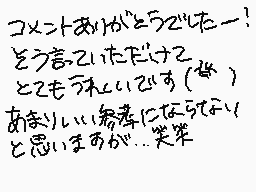 コメントありがとうでしたー!
そう言っていただけて
とてもうれしいです( )
あまりいい参考にならない
と思いますが…笑笑